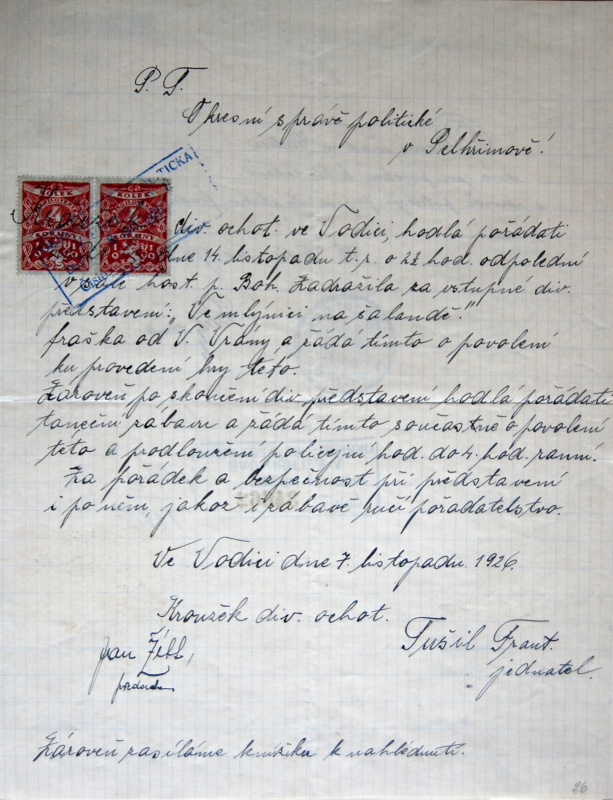 P. T.
Okresní správě politické
v Pelhřimově!
KOLEK KOLEK
div. ochot. ve Vodici, hodlá pořádati
dne 14. listopadu t. r. o hod. odpolední
v sále host. p. Boh. Zadražila za vstupné div.
představení: „Ve mlýnici na šalandě."
fraška od V. Vrány a žádá tímto o povolení
ku provedení hry této.
Zároveň po skončení div. představení hodlá pořádati
taneční zábavu a žádá tímto současně o povolení
této a prodloužení policejní hod. do 4. hod. ranní.
Za pořádek a bezpečnost při představení
i po něm, jakož i zábavě ručí pořadatelstvo.
Ve Vodici dne 7. listopadu 1926.
Kroužek div. ochot.
Jan
Tušil Frant.
předseda
jednatel.
Zároveň zasíláme knížku k nahlédnutí.
26